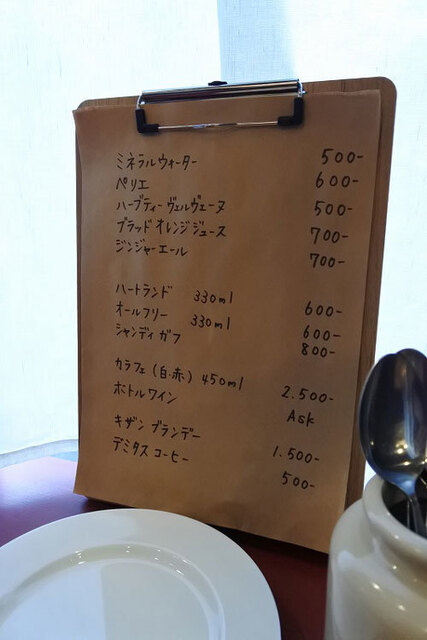 ミネラルウォーター 500-
ペリエ 600-
ハーブティー ヴェルヴェーヌ 500-
ブラッドオレンジジュース 700-
ジンジャーエール 700-
ハートランド 330ml 600-
オールフリー 330ml 600-
シャンディガフ 800-
カラフェ(白・赤) 450ml 2.500-
ボトルワイン Ask
キザンブランデー 1.500-
デミタスコーヒー 500-